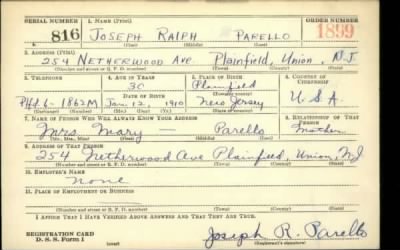 SERIAL NUMBER 1. NAME (Print) ORDER NUMBER
816 JOSEPH RALPH PARELLO 1899
(First) (Middle) (Last)
2. ADDRESS (Print)
254 NETHERWOOD AVE. Plainfield, Union, N.J.
(Number and street or R. F. D. number) (Town) (County) (State)
3. TELEPHONE 4. AGE IN YEARS 5. PLACE OF BIRTH 6. COUNTRY OF CITIZENSHIP
30 Plainfield
DATE OF BIRTH (Town or county)
Pl 6-1862M Jan. 12, 1910 New Jersey U.S.A.
(Exchange) (Number) (Mo.) (Day) (Yr.) (State or country)
7. NAME OF PERSON WHO WILL ALWAYS KNOW YOUR ADDRESS 8. RELATIONSHIP OF THAT PERSON
Mrs. Mary — Parello Mother
(Mr., Mrs., Miss) (First) (Middle) (Last)
9. ADDRESS OF THAT PERSON
254 Netherwood Ave Plainfield, Union, N.J.
(Number and street or R. F. D. number) (Town) (County) (State)
10. EMPLOYER'S NAME
None
11. PLACE OF EMPLOYMENT OR BUSINESS
(Number and street or R. F. D. number) (Town) (County) (State)
I AFFIRM THAT I HAVE VERIFIED ABOVE ANSWERS AND THAT THEY ARE TRUE.
REGISTRATION CARD
D. S. S. Form 1 Joseph R. Parello
(over) (Registrant's signature)